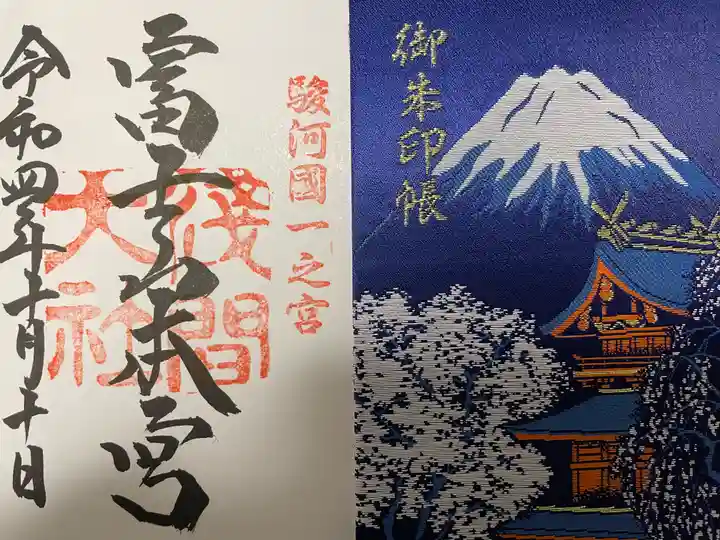 御朱印帳
駿河國一之宮
富士山本宮
浅間
大社
令和四年十月十日